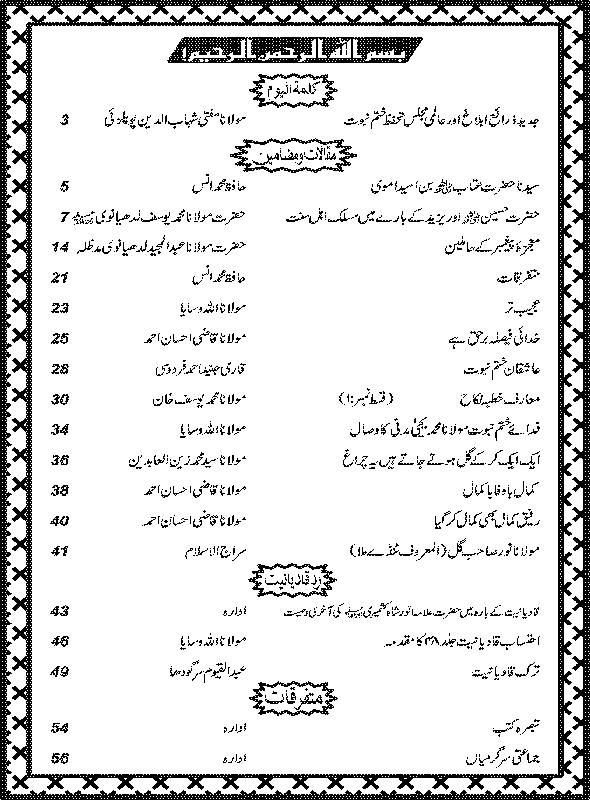 بسم اللہ الرحمن الرحیم
کلمۃ الیوم
جدید ذرائع ابلاغ اور عالمی مجلس تحفظ ختم نبوت مولانا مفتی شہاب الدین پوپلزئی 3
مقالات ومضامین
سیدنا حضرت عتاب بن اسید اموی حافظ محمد انس 5
حضرت حسین اور یزید کے بارے میں مسلک اہل سنت حضرت مولانا محمد یوسف لدھیانوی 7
معجزۂ پیغمبر کے حاملین حضرت مولانا عبدالمجید لدھیانوی مدظلہ 14
متفرقات حافظ محمد انس 21
عجیب تر مولانا اللہ وسایا 23
خدائی فیصلہ برحق ہے مولانا قاضی احسان احمد 25
عاشقان ختم نبوت قاری جنید احمد فردوسی 28
معارف خطبہ نکاح (قسط نمبر:۱) مولانا محمد یوسف خان 30
فدائے ختم نبوت مولانا محمد یحییٰ مدنی کا وصال مولانا اللہ وسایا 34
ایک ایک کر کے گل ہوتے جاتے ہیں یہ چراغ مولانا سید محمد زین العابدین 36
کمال باوفا باکمال مولانا قاضی احسان احمد 38
رفیق کمال بھی کمال کر گیا مولانا قاضی احسان احمد 40
مولانا نور صاحب گل (المعروف ٹنڈے ملا) سراج الاسلام 41
ردِ قادیانیت
قادیانیت کے بارہ میں حضرت علامہ انور شاہ کشمیری کی آخری وصیت ادارہ 43
احتساب قادیانیت جلد ۳۸ کا مقدمہ مولانا اللہ وسایا 46
ترک قادیانیت عبدالقیوم سرگودھا 49
متفرقات
تبصرہ کتب ادارہ 54
جماعتی سرگرمیاں ادارہ 56